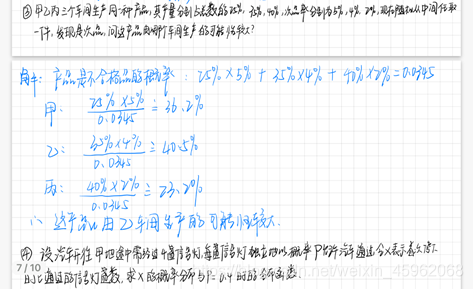 ③ 甲乙丙三个车间生产同一种产品，其产量分别占总数的25%，35%，40%，次品率分别为5%，4%，2%，现在随机从中间任取
一件，发现是次品，问这产品由哪个车间生产的可能性较大？
解：产品是不合格品的概率：25%×5% + 35%×4% + 40%×2% = 0.0345
甲：25%×5% / 0.0345 ≐ 36.2%
乙：35%×4% / 0.0345 ≐ 40.5%
丙：40%×2% / 0.0345 ≐ 23.2%
∴ 这产品由乙车间生产的可能性较大.
④ 设汽车开往甲地途中需经过4盏信号灯，每盏信号灯独立地以概率P允许汽车通过，令X表示首次停下
时已通过的信号灯盏数，求X的概率分布与P=0.4时的分布函数.
7 / 10
https://blog.csdn.net/weixin_45962068